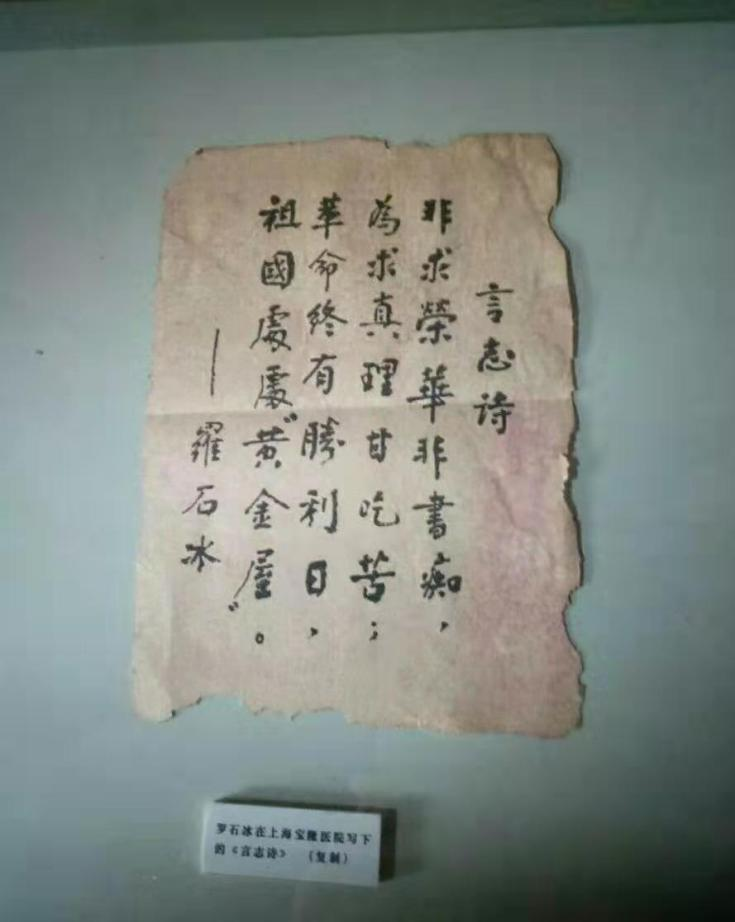 言志诗
非求榮華非書痴，
為求真理甘吃苦；
革命終有勝利日，
祖國處處“黄金屋”。
——羅石冰
罗石冰在上海宝隆医院写下
的《言志诗》 （复制）